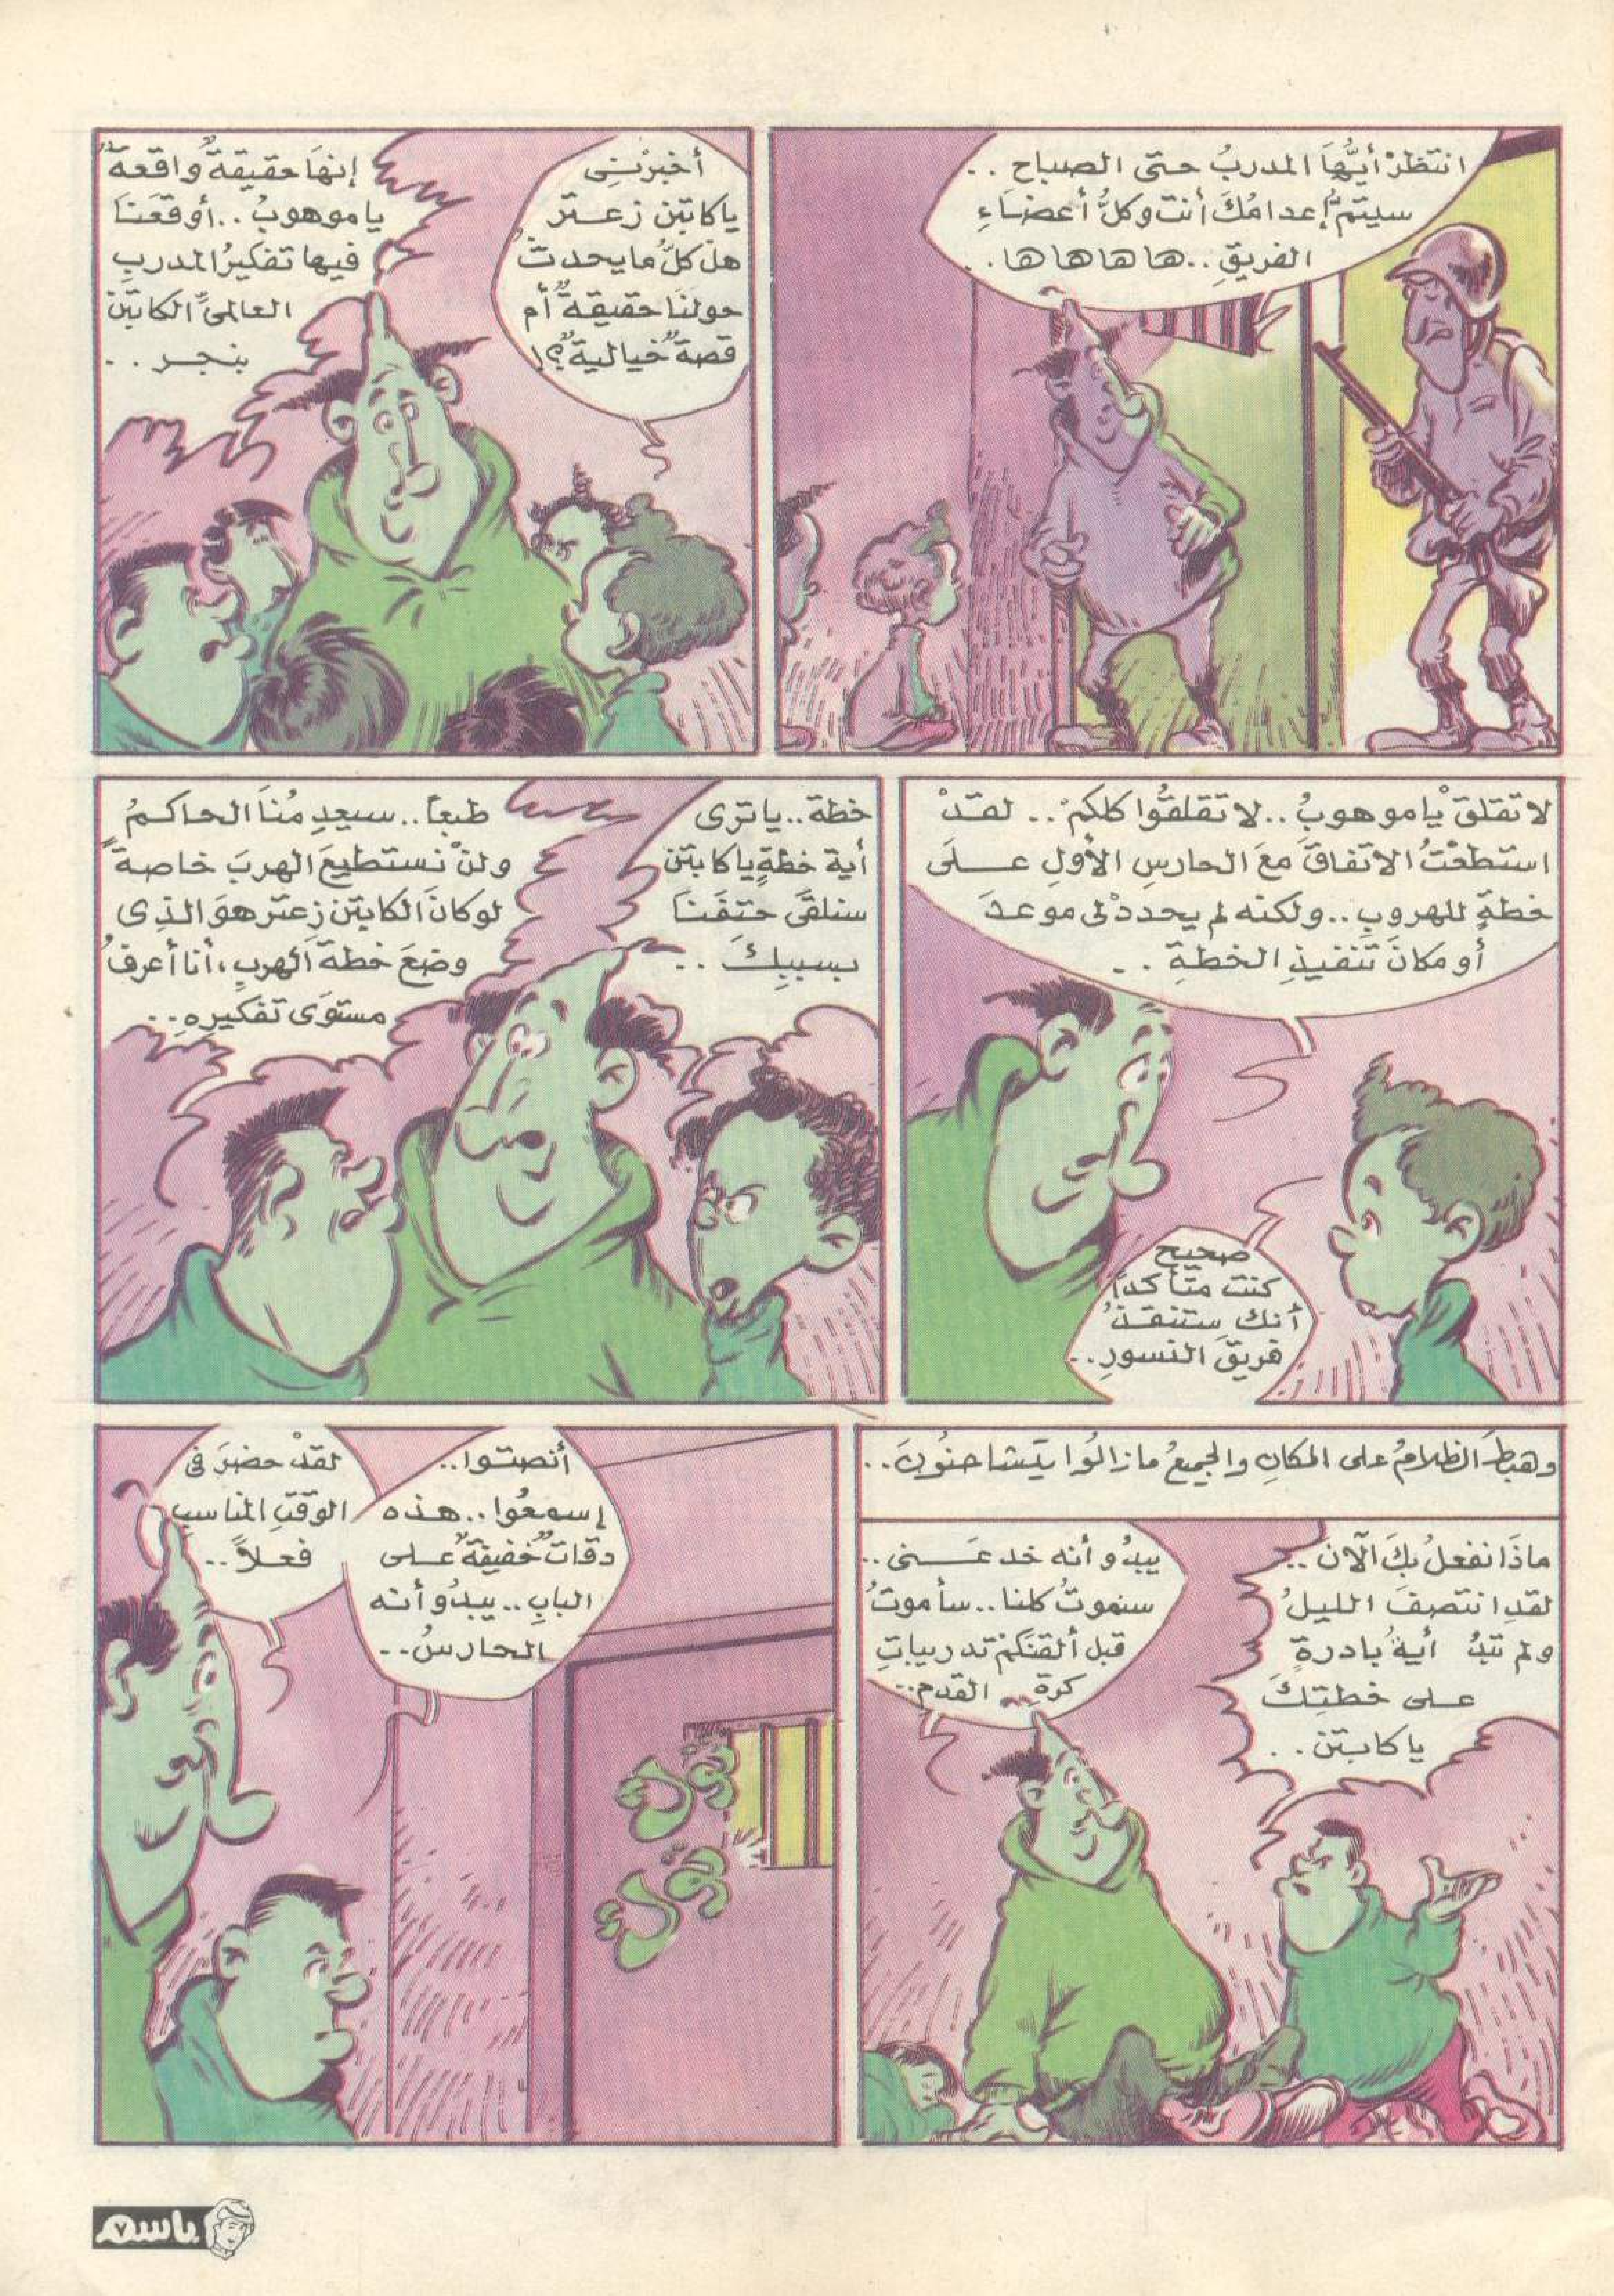 انتظرْ أيُّهَا المدربُ حتى الصباح ..
سيتمُّ إعدامُكَ أنتَ وكلُّ أعضَاءِ
الفريقِ .. ها ها ها ها ..
أخبرْنِى
ياكابتن زعتر
هل كلُّ مايحدثُ
حولنَا حقيقةٌ أم
قصةٌ خياليةٌ ؟!
إنهَا حقيقةٌ واقعةٌ
ياموهوبُ .. أوقعَنَا
فيها تفكيرُ المدربِ
العالمىِّ الكابتن
بنجر ..
لا تقلقْ ياموهوبُ .. لا تقلقُوا كلكمْ .. لقدْ
استطعْتُ الاتفاقَ معَ الحارسِ الأولِ علَى
خطةٍ للهروبِ .. ولكنه لم يحددْ لى موعدَ
أو مكانَ تنفيذِ الخطةِ ..
صحيح
كنتُ متأكداً
أنكَ ستنقذُ
فريقَ النسورِ ..
خطة .. ياترى
أية خطةٍ ياكابتن
سنلقَى حتفَنَا
بسببِكَ ..
طبعاً .. سيعدِمُنَا الحاكمُ
ولنْ نستطيعَ الهربَ خاصةً
لوكانَ الكابتن زعتر هوَ الذِى
وضعَ خطةَ الهربِ ، أنا أعرفُ
مستوَى تفكيرِهِ ..
وهبطَ الظلامُ على المكانِ والجميعُ مازالُوا يتشاحنُونَ ..
ماذَا نفعلُ بكَ الآنَ ..
لقدِ انتصفَ الليلُ
ولم تبدُ أيةُ بادرةٍ
على خطتِكَ
ياكابتن ..
يبدُو أنه خدعَنى ..
سنموتُ كلنا .. سأموتُ
قبل ألقنَكمْ تدريباتِ
كرةِ القدمِ ..
أنصتُوا ..
إسمعُوا .. هذه
دقاتٌ خفيفةٌ على
البابِ .. يبدُو أنه
الحارسُ ..
لقدْ حضرَ فى
الوقتِ المناسبِ
فعلاً ..
توك
توك
باسم
٧